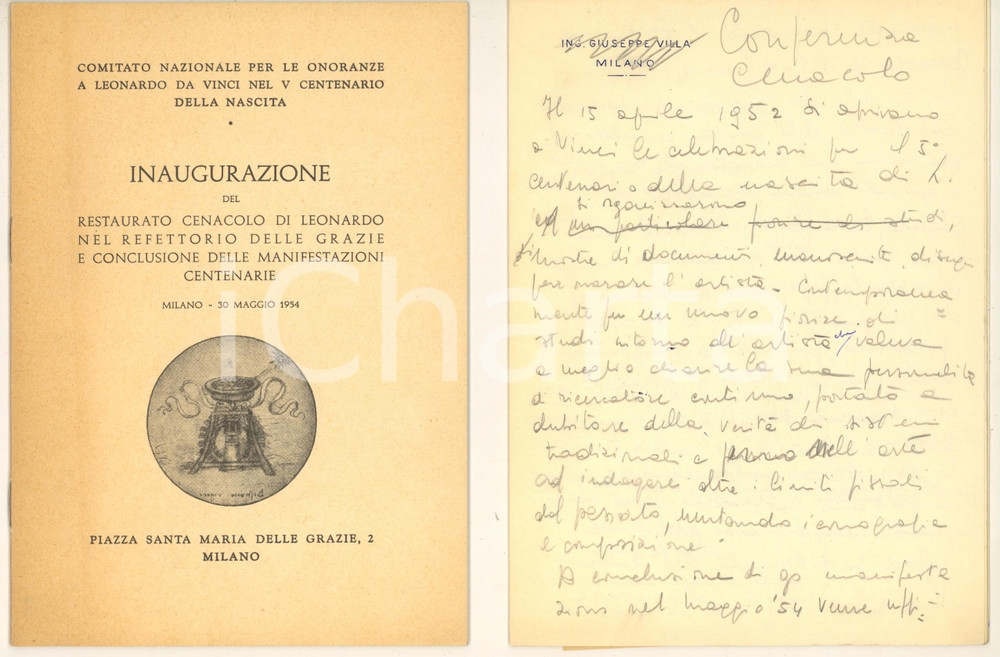 COMITATO NAZIONALE PER LE ONORANZE
A LEONARDO DA VINCI NEL V CENTENARIO
DELLA NASCITA
INAUGURAZIONE
DEL
RESTAURATO CENACOLO DI LEONARDO
NEL REFETTORIO DELLE GRAZIE
E CONCLUSIONE DELLE MANIFESTAZIONI
CENTENARIE
MILANO - 30 MAGGIO 1954
PIAZZA SANTA MARIA DELLE GRAZIE, 2
MILANO
ING. GIUSEPPE VILLA
MILANO
Conferenza
Cenacolo
Il 15 aprile 1952 si aprivano
a Vinci le celebrazioni per il 5°
centenario della nascita di L.
si organizzarono
un particolare fiorire di studi,
mostre di documenti, manoscritti, disegni
l'artista. Contemporanea
mente fu un nuovo fiorire di
studi intorno all'artista che valeva
a meglio chiarire la sua personalità
di ricercatore continuo, portato a
dubitare della verità dei sistemi
tradizionali e nell'arte
ad indagare oltre i limiti fissati
dal passato, mutando iconografia
e composizione
A conclusione di qs manifesta
zioni nel maggio '54 venne uffi=
iCharta